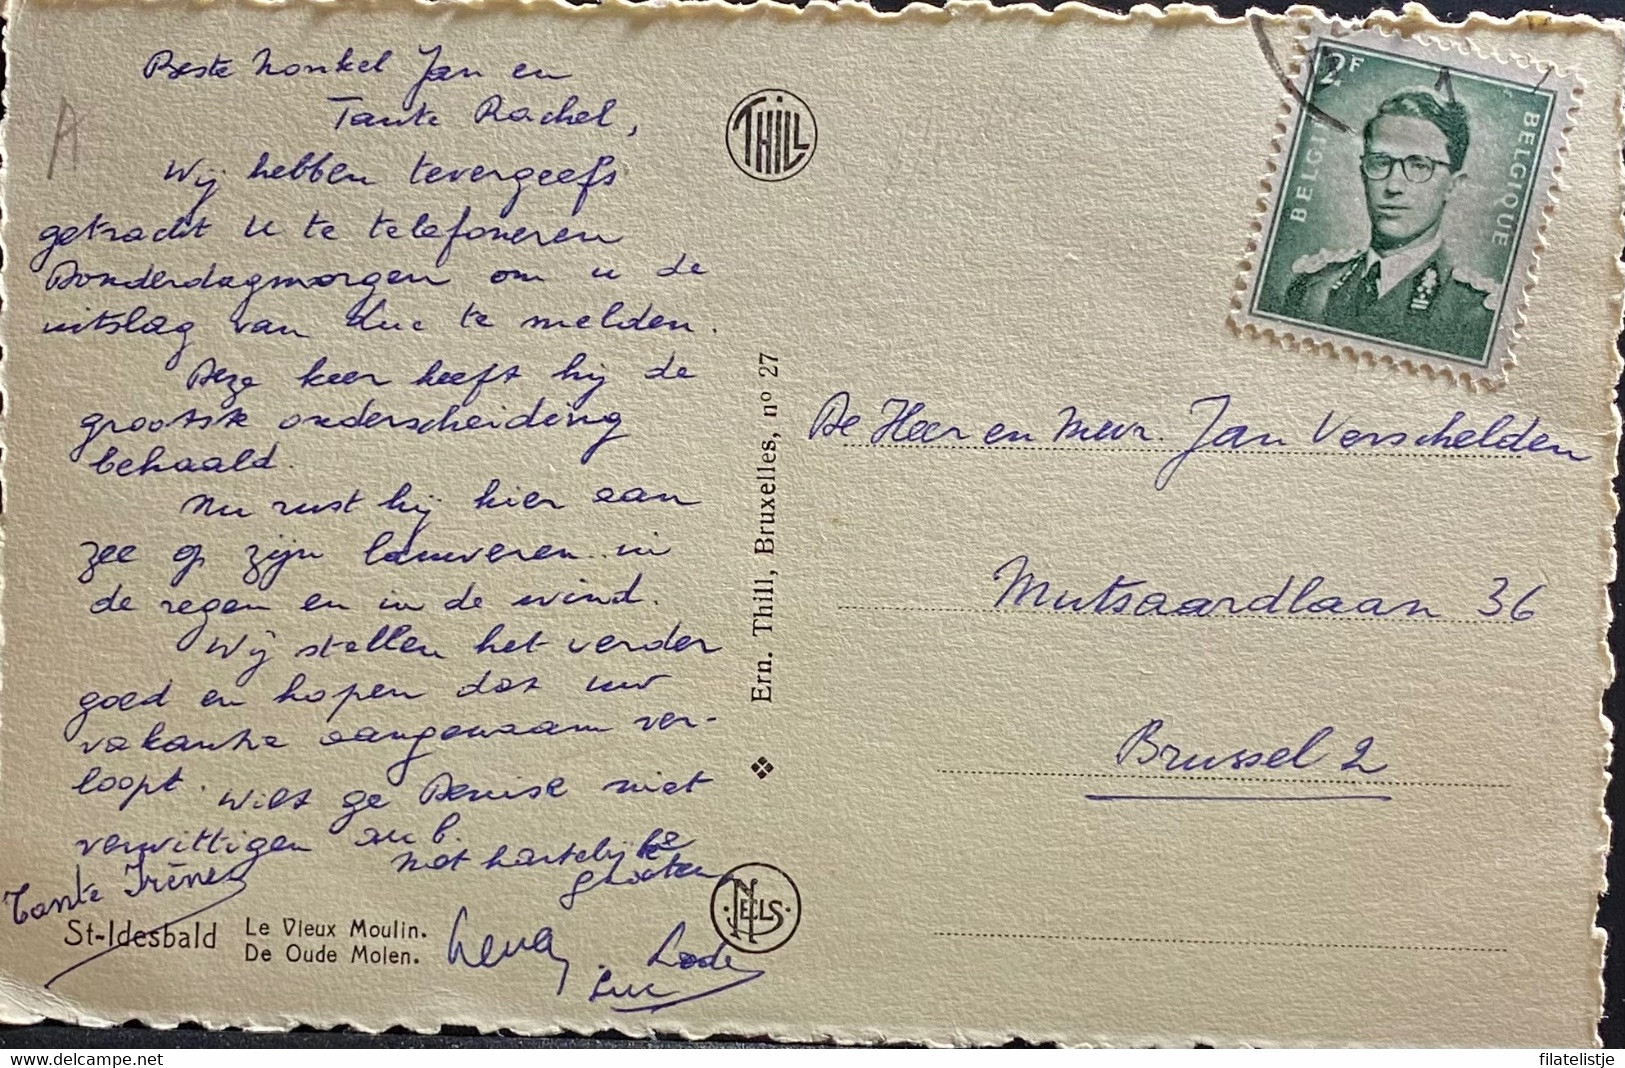 Beste Nonkel Jan en
Tante Rachel,
Wij hebben tevergeefs
getracht U te telefoneren
Donderdagmorgen om u de
uitslag van Luc te melden.
Deze keer heeft hij de
grootste onderscheiding
behaald.
Nu rust hij hier aan
zee op zijn lauweren in
de regen en in de wind.
Wij stellen het verder
goed en hopen dat uw
vakantie aangenaam ver-
loopt. Wilt ge Denise niet
verwittigen aub.
Met hartelijke
groeten
Tante Irène
Lena
Lode
Luc
St-Idesbald
Le Vieux Moulin.
De Oude Molen.
THILL
Ern. Thill, Bruxelles, nº 27
NELS
A
2F
BELGIË
BELGIQUE
De Heer en Mevr. Jan Verschelden
Mutsaardlaan 36
Brussel 2
filatelistje